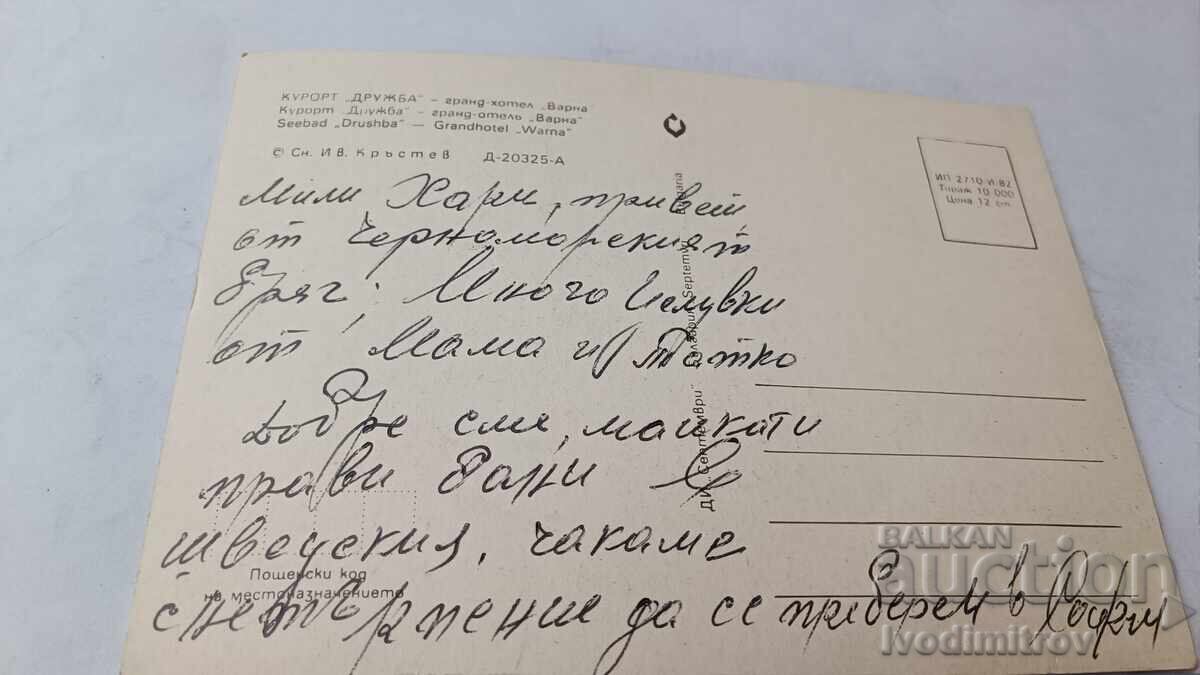 КУРОРТ „ДРУЖБА" – гранд-хотел „Варна"
Курорт „Дружба" – гранд-отель „Варна"
Seebad „Drushba" — Grandhotel „Warna"
© Сн. Ив. Кръстев Д-20325-А
ИП 2710-И-82
Тираж 10 000
Цена 12 ст.
Мили Хари, привет
от Черноморският
бряг. Много Целувки
от Мама и Татко
Добре сме, майкати
прави бани в
шведския, чакаме
с нетърпение да се приберем в София
ДИ „Септември" Bulgaria
Пощенски код
на местоназначението
BALKAN
auction
Ivodimitrov